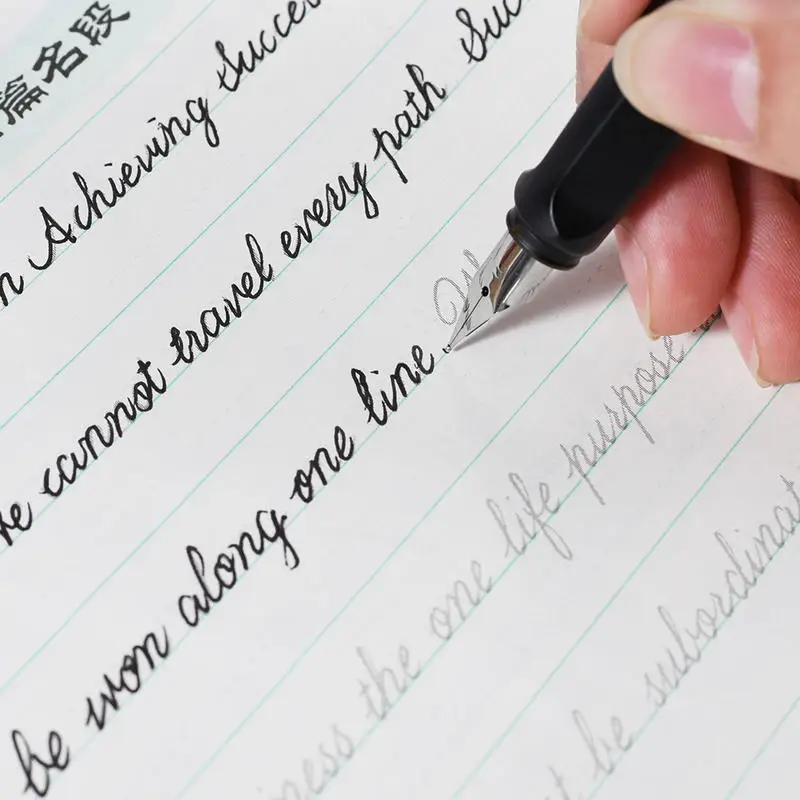 篇名段
n Achieving Succe
e cannot travel every path Suc
be won along one line
ness the one life purpose
t be subordinat